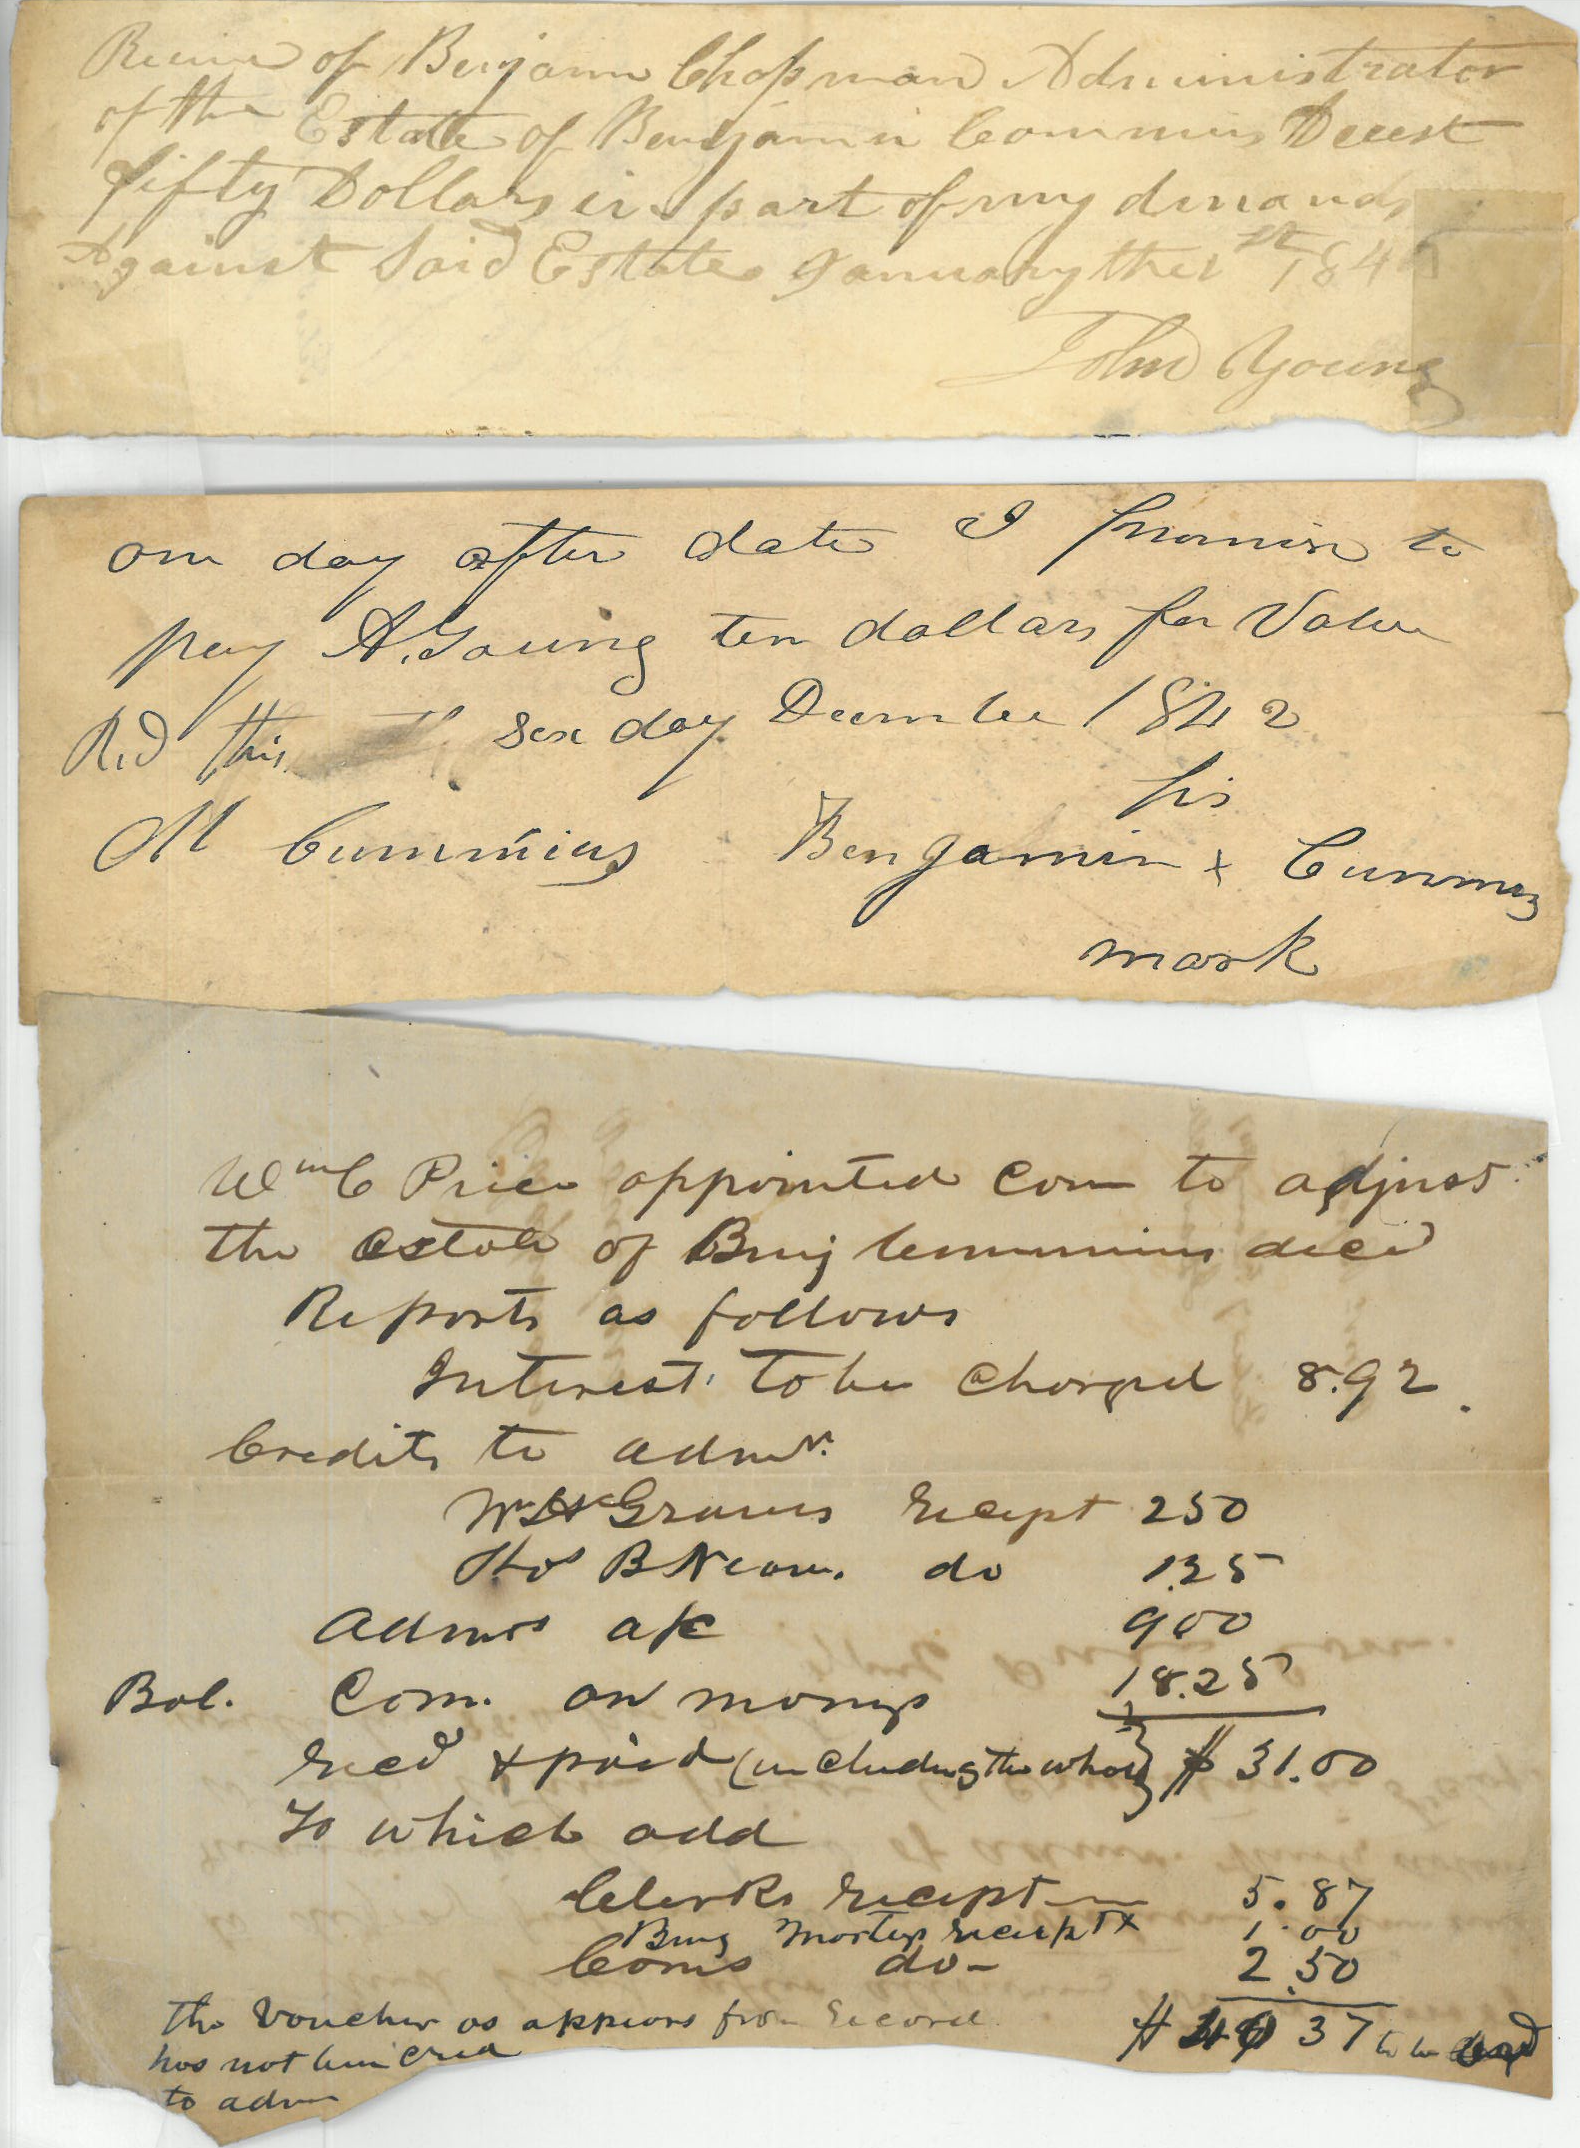 Receivd of Benjamin Chapman Administrator
of the Estate of Benjamin Commins Decest
fifty Dollars in part of my demands
Against Said Estate January the 1st 184
John Young
one day after date I promise to
pay A. Young ten dollars for Value
Rid this sex day December 1842
his
M Cummins Benjamin x Cummins
mark
Wm C Price appointed Com to adjust
the estate of Benj Cummins decd
Reports as follows
Interest to be charged 8.92
Credits to admr.
Graves receipt 250
Thos B do 1.25
Admrs a/c 900
Bal. Com. on moneys 18.25
recd & paid (including the whole} $ 31.00
To which add
Clerks receipt 5.87
Benj receipt x 1.00
Coms do 2.50
the Voucher as appears from record $ 40 37 to be
has not been cred
to adm